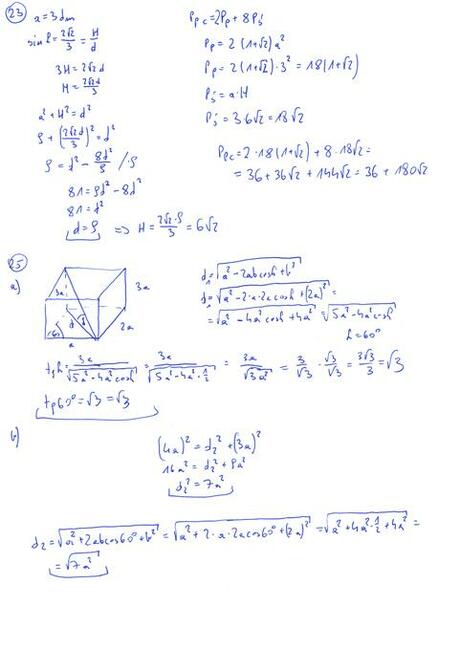 23
a = 3 dm
sin α = 2√2/3 = H/d
3H = 2√2d
H = 2√2d/3
a² + H² = d²
9 + (2√2d/3)² = d²
9 = d² - 8d²/9 /·9
81 = 9d² - 8d²
81 = d²
d = 9 => H = 2√2·9/3 = 6√2
Ppc = 2Pp + 8Pś
Pp = 2(1+√2)a²
Pp = 2(1+√2)·3² = 18(1+√2)
Pś = a·H
Pś = 3·6√2 = 18√2
Ppc = 2·18(1+√2) + 8·18√2 =
= 36 + 36√2 + 144√2 = 36 + 180√2
25
a)
3a
60°
d
a
2a
3a
d₁ = √(a² - 2ab cos α + b²)
d₁ = √(a² - 2·a·2a cos α + (2a)²) =
= √(a² - 4a² cos α + 4a²) √(5a² - 4a² cos α)
α = 60°
tg α = 3a/√(5a² - 4a² cos α) = 3a/√(5a² - 4a²·1/2) = 3a/√(3a²) = 3/√3 · √3/√3 = 3√3/3 = √3
tg 60° = √3 = √3
b)
(4a)² = d₂² + (3a)²
16a² = d₂² + 9a²
d₂² = 7a²
d₂ = √(a² + 2ab cos 60° + b²) = √(a² + 2·a·2a cos 60° + (2a)²) = √(a² + 4a²·1/2 + 4a²) =
= √(7a²)